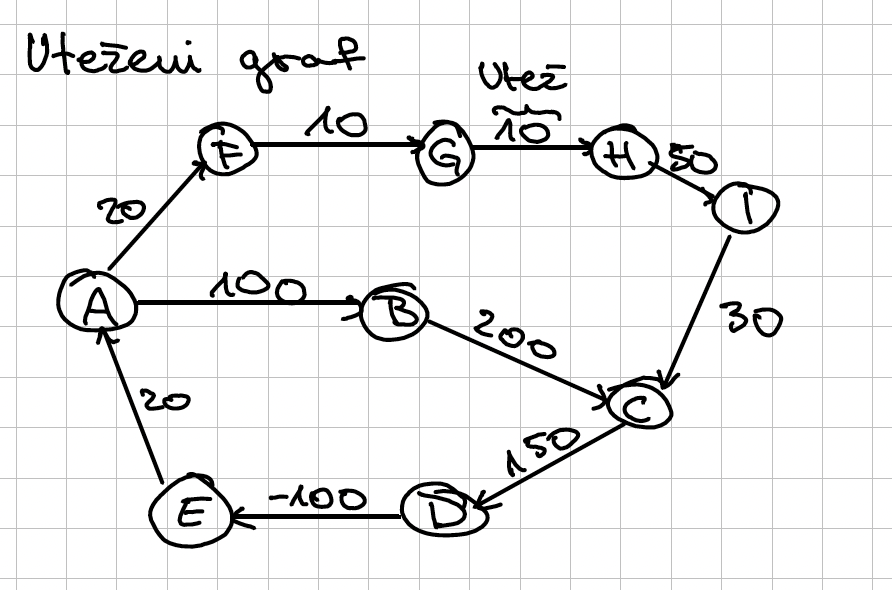 Uteženi graf
Utež
F 10 G 10 H 50 I
20
A 100 B 200 30
C
20 150
E -100 D